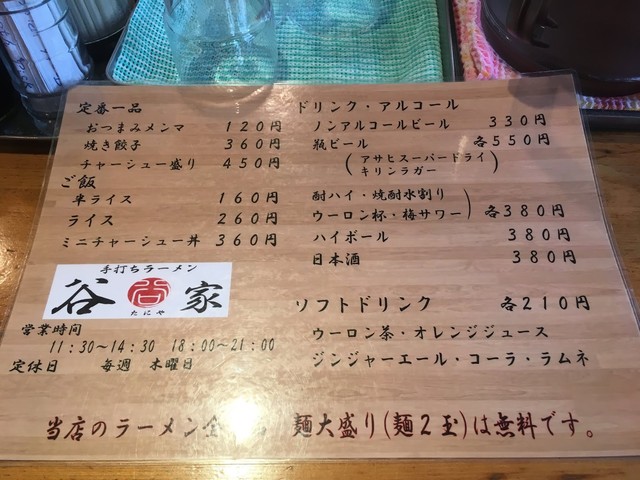 定番一品
おつまみメンマ 120円
焼き餃子 360円
チャーシュー盛り 450円
ご飯
半ライス 160円
ライス 260円
ミニチャーシュー丼 360円
手打ちラーメン
谷 家
たにや
営業時間
11:30~14:30 18:00~21:00
定休日 毎週 木曜日
ドリンク・アルコール
ノンアルコールビール 330円
瓶ビール 各550円
(アサヒスーパードライ
キリンラガー)
酎ハイ・焼酎水割り
ウーロン杯・梅サワー) 各380円
ハイボール 380円
日本酒 380円
ソフトドリンク 各210円
ウーロン茶・オレンジジュース
ジンジャーエール・コーラ・ラムネ
当店のラーメン全 麺大盛り(麺2玉)は無料です。